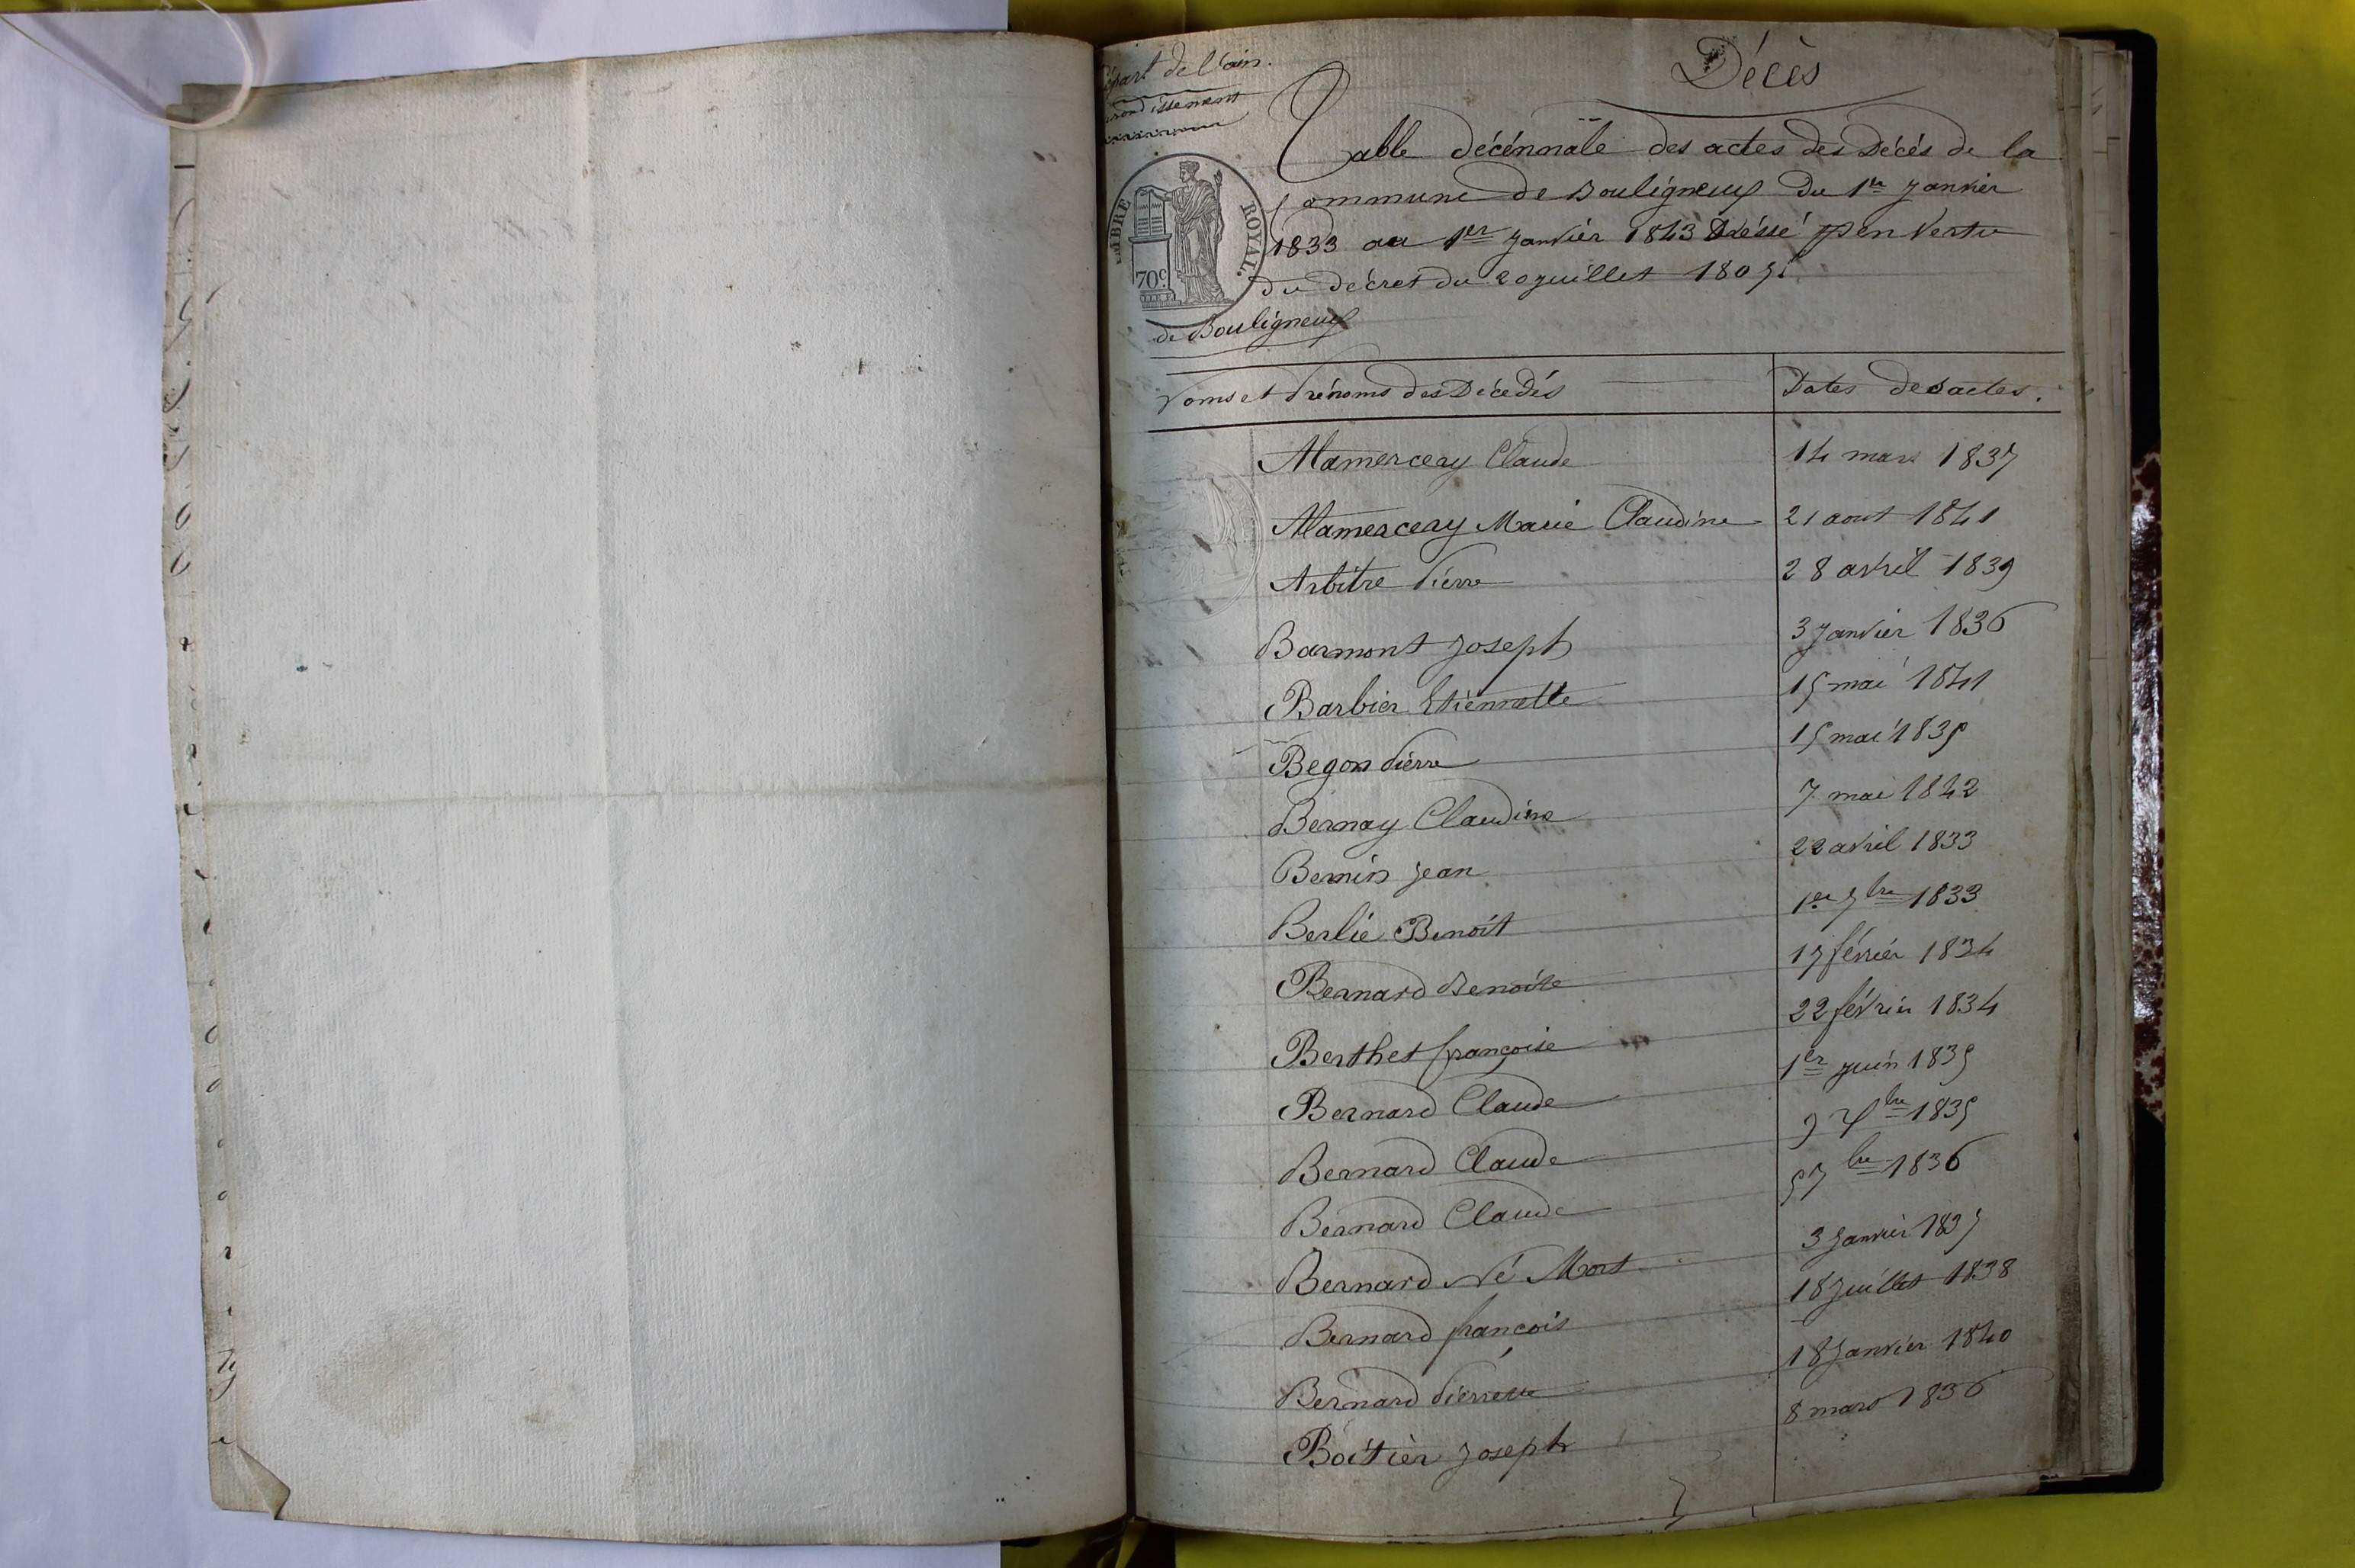 Décès
Départ de l'ain.
arrondissement
Table décénnale des actes des Décés de la
Commune de Bouligneux du 1er Janvier
1833 au 1er Janvier 1843 Dréssé en Vertu
du décret du 20 juillet 1807.
TIMBRE ROYAL.
70c.
de Bouligneux
Noms et Prénoms des Décédés Dates des actes.
Alamercery Claude 14 mars 1837
Alamercery Marie Claudine 21 aout 1841
Arbitre Pierre 28 avril 1839
Barmont Joseph 3 Janvier 1836
Barbier Etiennette 15 mai 1841
Begon Pierre 15 mai 1835
Bernay Claudine 7 mai 1842
Bernin Jean 22 avril 1833
Berlié Benoit 1er 7bre 1833
Bernard Benoite 17 février 1834
Berthet françoise 22 février 1834
Bernard Claude 1er juin 1835
Bernard Claude 9 Xbre 1835
Bernard Claude 5 7bre 1836
Bernard Né Mort 3 Janvier 1837
Bernard francois 18 Juillet 1838
Bernard Pierrette 18 Janvier 1840
Boitier Joseph 8 mars 1836